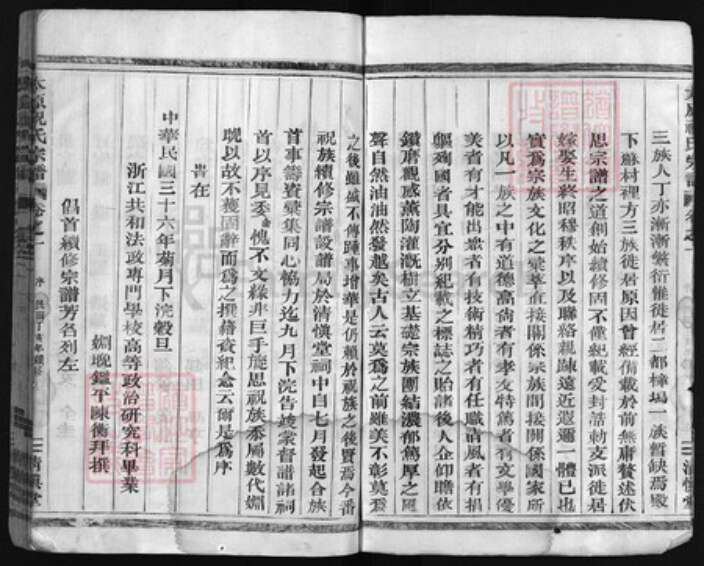 三族人丁亦漸漸繁衍惟徙居二都樟塢一族暫缺焉殿
下麻材裡方三族徙居原因曾經備載於前無庸贅述伏
思宗譜之道創始續修固不僅紀載受封誥勅支派徙居
嫁娶生終昭穆秩序以及聯絡親疎遠近遐邇一體已也
實爲宗族文化之藁萃直接關係宗族間接關係國家所
以凡一族之中有道德高尙者有孝友特篤者有文學優
美者有才能出眾者有技術精巧者有任職清風者有捐
軀殉國者具宜分別紀載之標誌之貽諸後人企仰瞻依
鑽磨觀感薰陶灌溉樹立基礎宗族團結濃郁篤厚之風
聲自然油油然發越矣古人云莫爲之前雖美不彰莫爲
之後雖盛不傳踵事增華是仍賴於祝族之後賢焉今番
祝族續修宗譜設譜局於清慎堂祠中自七月發起合族
首事籌資彙集同心協力迄九月下浣告竣裳督譜諸祠
首以序見委愧不文緣非巨手旋思祝族忝屬數代姻
戚以故不獲固辭而爲之撰藉資紀念云爾是爲序
旹在
中華民國三十六年菊月下浣穀旦
浙江共和法政專門學校高等政治研究科畢業
姻晚鑑平陳衡拜撰
倡首續修宗譜芳名列左
太原祝氏宗譜
卷之一
序
清慎堂